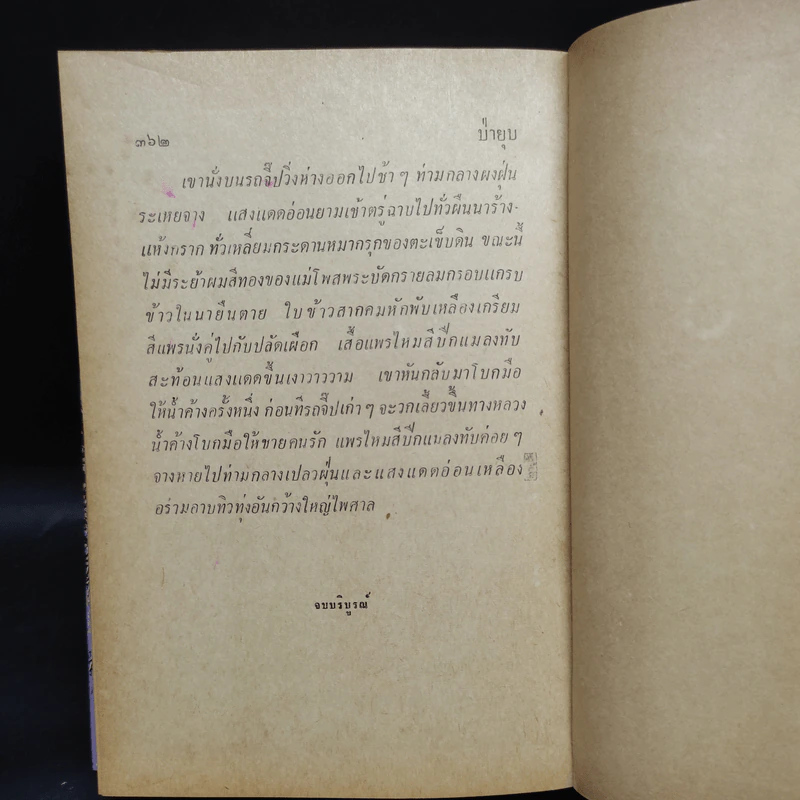 ๓๖๒
ป่ายุบ
เขานั่งบนรถจี๊ปวิ่งห่างออกไปช้า ๆ ท่ามกลางผงฝุ่น
ระเหยจาง แสงแดดอ่อนยามเช้าตรู่ฉาบไปทั่วผืนนาร้าง-
แห้งกราก ทั่วเหลี่ยมกระดานหมากรุกของตะเข็บดิน ขณะนี้
ไม่มีระย้าผมสีทองของแม่โพสพระบัดกรายลมกรอบแกรบ
ข้าวในนายืนตาย ใบข้าวสากคมหักพับเหลืองเกรียม
สีแพรนั่งคู่ไปกับปลัดเผือก เสื้อแพรไหมสีปีกแมลงทับ
สะท้อนแสงแดดขึ้นเงาวาววาม เขาหันกลับมาโบกมือ
ให้น้ำค้างครั้งหนึ่ง ก่อนที่รถจี๊ปเก่า ๆ จะวกเลี้ยวขึ้นทางหลวง
น้ำค้างโบกมือให้ชายคนรัก แพรไหมสีปีกแมลงทับค่อย ๆ
จางหายไปท่ามกลางเปลวฝุ่นและแสงแดดอ่อนเหลือง
อร่ามอาบทิวทุ่งอันกว้างใหญ่ไพศาล
จบบริบูรณ์